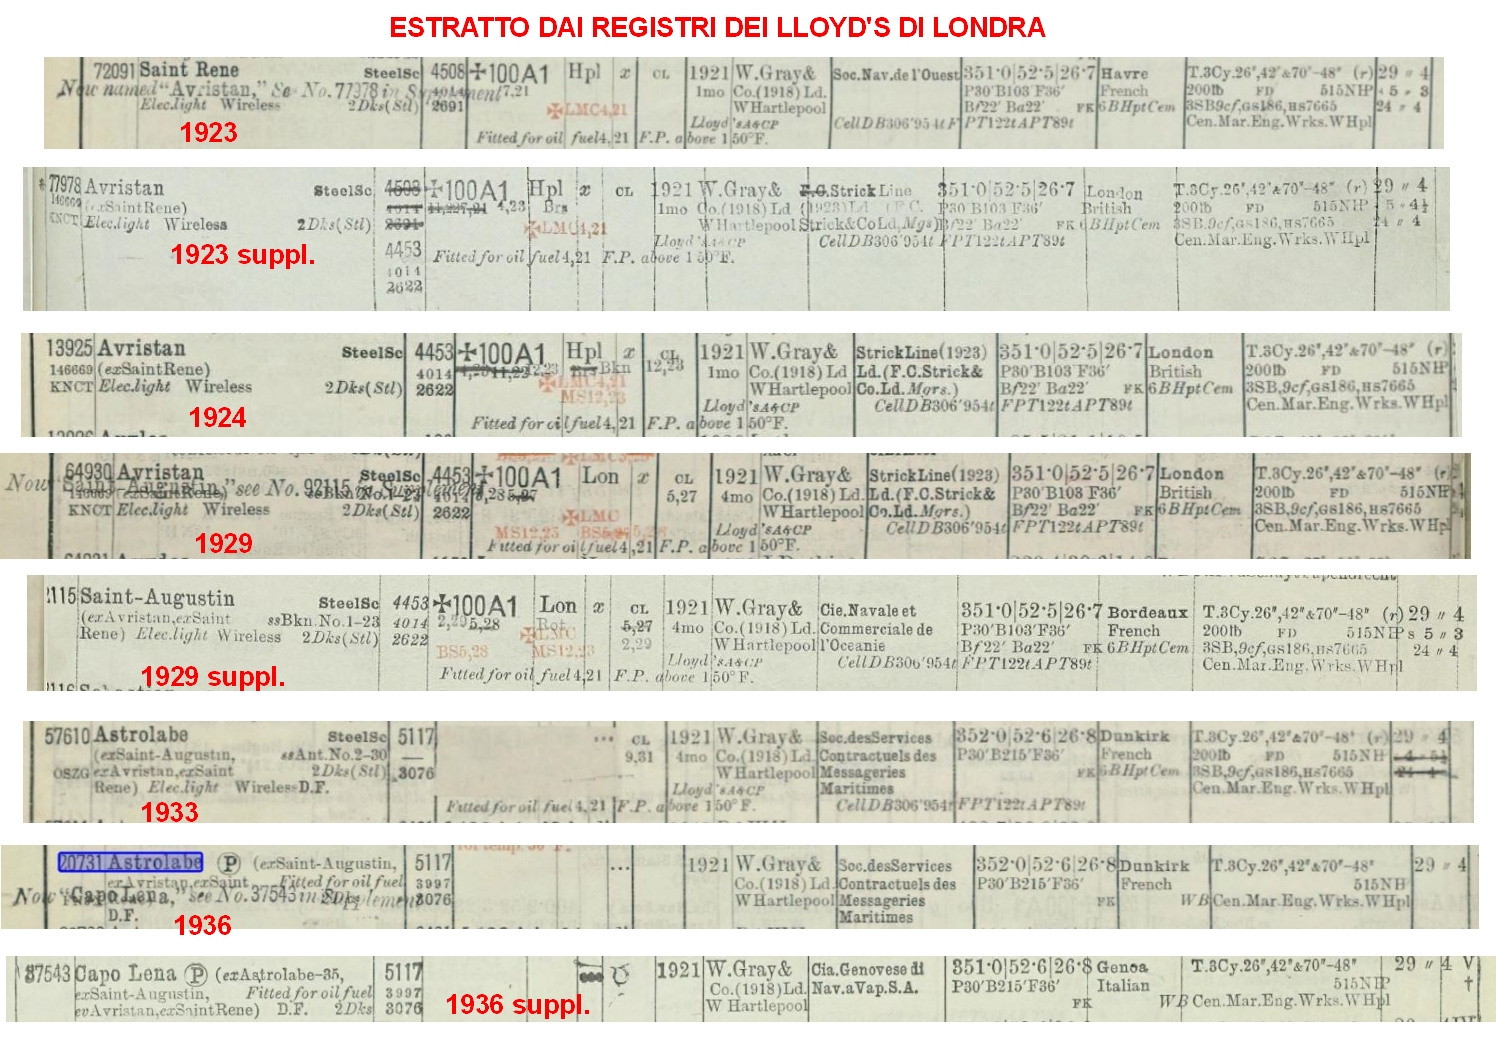 ESTRATTO DAI REGISTRI DEI LLOYD'S DI LONDRA
72091 Saint Rene SteelSc 4508 ✠100A1 Hpl x CL 1921 W.Gray& Soc.Nav.de l'Ouest 351·0 52·5 26·7 Havre T.3Cy.26",42"&70"-48" (r) 29 " 4
Now named "Avristan," See No. 77978 in Supplement 4014 7,21 1mo Co.(1918) Ld P30'B103'F36' French 200lb FD 515NHP 5 " 3
Elec.light Wireless 2Dks(Stl) 2691 ✠LMC4,21 WHartlepool Bf22' Ba22' FK 6BHptCem 3SB,9cf,GS186,HS7665 24 " 4
Lloyd'sA&CP CellDB306'954t FPT122tAPT89t Cen.Mar.Eng.Wrks.WHpl
1923 Fitted for oil fuel 4,21 F.P. above 150°F.
77978 Avristan SteelSc 4508 ✠100A1 Hpl x CL 1921 W.Gray& F.C.Strick Line 351·0 52·5 26·7 London T.3Cy.26",42"&70"-48" (r) 29 " 4
146669 (exSaintRene) 4014 4,23 Brs 1mo Co.(1918) Ld (1923) Ld. (F.C. P30'B103'F36' British 200lb FD 515NHP 5 " 4½
KNCT Elec.light Wireless 2Dks(Stl) 2691 ✠LMC4,21 WHartlepool Strick&CoLd,Mgrs.) Bf22' Ba22' FK 6BHptCem 3SB,9cf,GS186,HS7665 24 " 4
4453 Lloyd'sA&CP CellDB306'954t FPT122tAPT89t Cen.Mar.Eng.Wrks.WHpl
1923 suppl. Fitted for oil fuel 4,21 F.P. above 150°F.
4014
2622
13925 Avristan SteelSc 4453 ✠100A1 Hpl x CL 1921 W.Gray& StrickLine(1923) 351·0 52·5 26·7 London T.3Cy.26",42"&70"-48" (r)
146669 (exSaintRene) 4014 12,23 Brs Bkn 12,23 1mo Co.(1918) Ld Ld.(F.C.Strick& P30'B103'F36' British 200lb FD 515NHP
KNCT Elec.light Wireless 2Dks(Stl) 2622 ✠LMC4,21 WHartlepool Co.Ld.Mgrs.) Bf22' Ba22' FK 6BHptCem 3SB,9cf,GS186,HS7665
MS12,23 Lloyd'sA&CP CellDB306'954t FPT122tAPT89t Cen.Mar.Eng.Wrks.WHpl
1924 Fitted for oil fuel 4,21 F.P. above 150°F.
64930 Avristan SteelSc 4453 ✠100A1 Lon x CL 1921 W.Gray& StrickLine(1923) 351·0 52·5 26·7 London T.3Cy.26",42"&70"-48" (r)
Now "Saint-Augustin," see No. 92115 in Supplement
146669 (exSaintRene) ssBkn.No.1-23 4014 5,27 4mo Co.(1918) Ld. Ld.(F.C.Strick& P30'B103'F36' British 200lb FD 515NHP
KNCT Elec.light Wireless 2Dks(Stl) 2622 ✠LMC WHartlepool Co.Ld.Mgrs.) Bf22' Ba22' FK 6BHptCem 3SB,9cf,GS186,HS7665
MS12,25 Lloyd'sA&CP CellDB306'954t FPT122tAPT89t Cen.Mar.Eng.Wrks.WHpl
1929 Fitted for oil fuel 4,21 F.P. above 150°F.
2115 Saint-Augustin SteelSc 4453 ✠100A1 Lon x CL 1921 W.Gray& Cie.Navale et 351·0 52·5 26·7 Bordeaux T.3Cy.26",42"&70"-48" (r) 29 " 4
(exAvristan,exSaint ssBkn.No.1-23 4014 2,29 5,28 Rot 5,27 4mo Co.(1918) Ld. Commerciale de P30'B103'F36' French 200lb FD 515NHP s 5 " 3
Rene) Elec.light Wireless 2Dks(Stl) 2622 ✠LMC 2,29 WHartlepool l'Oceanie Bf22' Ba22' FK 6BHptCem 3SB,9cf,GS186,HS7665 24 " 4
BS5,28 MS12,23 Lloyd'sA&CP CellDB306'954t FPT122tAPT89t Cen.Mar.Eng.Wrks.WHpl
1929 suppl. Fitted for oil fuel 4,21 F.P. above 150°F.
57610 Astrolabe SteelSc 5117 ... CL 1921 W.Gray& Soc.desServices 352·0 52·6 26·8 Dunkirk T.3Cy.26",42"&70"-48" (r) 29 " 4
(exSaint-Augustin, ssAnt.No.2-30 — 9,31 4mo Co.(1918) Ld. Contractuels des P30'B215'F36' French 200lb FD 515NHP
OSZG exAvristan,exSaint 2Dks(Stl) 3076 WHartlepool Messageries FK 6BHptCem 3SB,9cf,GS186,HS7665
Rene) Elec.light Wireless D.F. Lloyd'sA&CP Maritimes Cen.Mar.Eng.Wrks.WHpl
1933 Fitted for oil fuel 4,21 F.P. above 150°F. CellDB306'954t FPT122tAPT89t
20731 Astrolabe Ⓟ (exSaint-Augustin, 5117 ... 1921 W.Gray& Soc.desServices 352·0 52·6 26·8 Dunkirk T.3Cy.26",42"&70"-48" 29 " 4
exAvristan,exSaint Fitted for oil fuel 3997 Co.(1918) Ld. Contractuels des P30'B215'F36' French 515NH
Now "Capo Lena," see No. 37543 in Supplement 2Dks 3076 WHartlepool Messageries FK WB Cen.Mar.Eng.Wrks.WHpl
D.F. Maritimes
1936
37543 Capo Lena Ⓟ (exAstrolabe-35, 5117 1921 W.Gray& Cia.Genovese di 351·0 52·6 26·8 Genoa T.3Cy.26",42"&70"-48" 29 " 4 V
exSaint-Augustin, Fitted for oil fuel 3997 Co.(1918) Ld. Nav.aVap.S.A. P30'B215'F36' Italian 515NHP †
exAvristan,exSaintRene) D.F. 2Dks 3076 W Hartlepool FK WB Cen.Mar.Eng.Wrks.WHpl
1936 suppl.